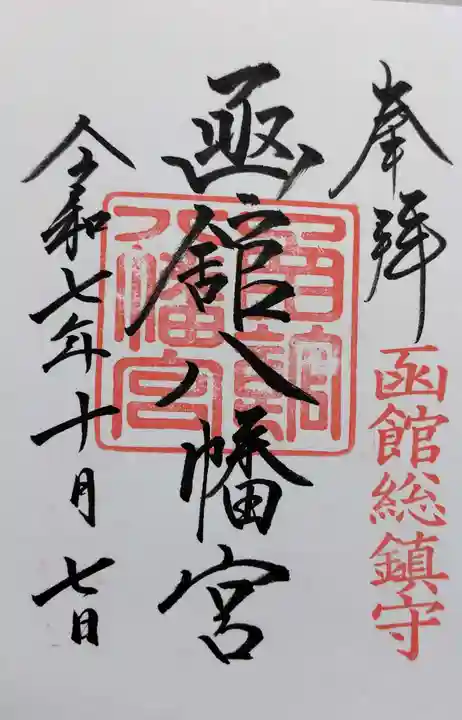 奉拝
函館総鎮守
函館八幡宮
函館八幡宮
令和七年十月七日